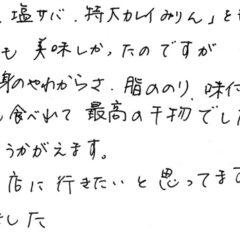 、塩サバ、特大カレイみりん」を
も 美味しかったのですが
身のやわらかさ、脂ののり、味付
食べれて 最高の干物でした
うかがえます。
店に行きたいと思ってます
した